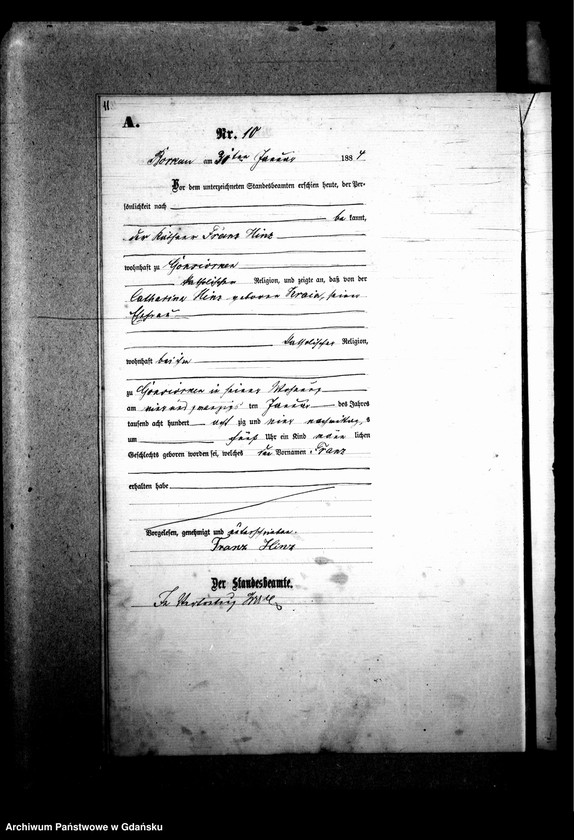 11
A.
Nr. 10
Borkau am 30ten Januar 1884
Vor dem unterzeichneten Standesbeamten erschien heute, der Per-
sönlichkeit nach
be kannt,
der Franz Hinz
wohnhaft zu
katholischer Religion, und zeigte an, daß von der
Catharina Hinz geboren seiner
Ehefrau
katholischer Religion,
wohnhaft bei ihm
zu in seiner Wohnung
am vier und zwanzig ten Januar des Jahres
tausend acht hundert acht zig und vier nachmittags
um fünf Uhr ein Kind männ lichen
Geschlechts geboren worden sei, welches den Vornamen Franz
erhalten habe
Vorgelesen, genehmigt und unterschrieben.
Franz Hinz
Der Standesbeamte.
In Vertretung
Archiwum Państwowe w Gdańsku